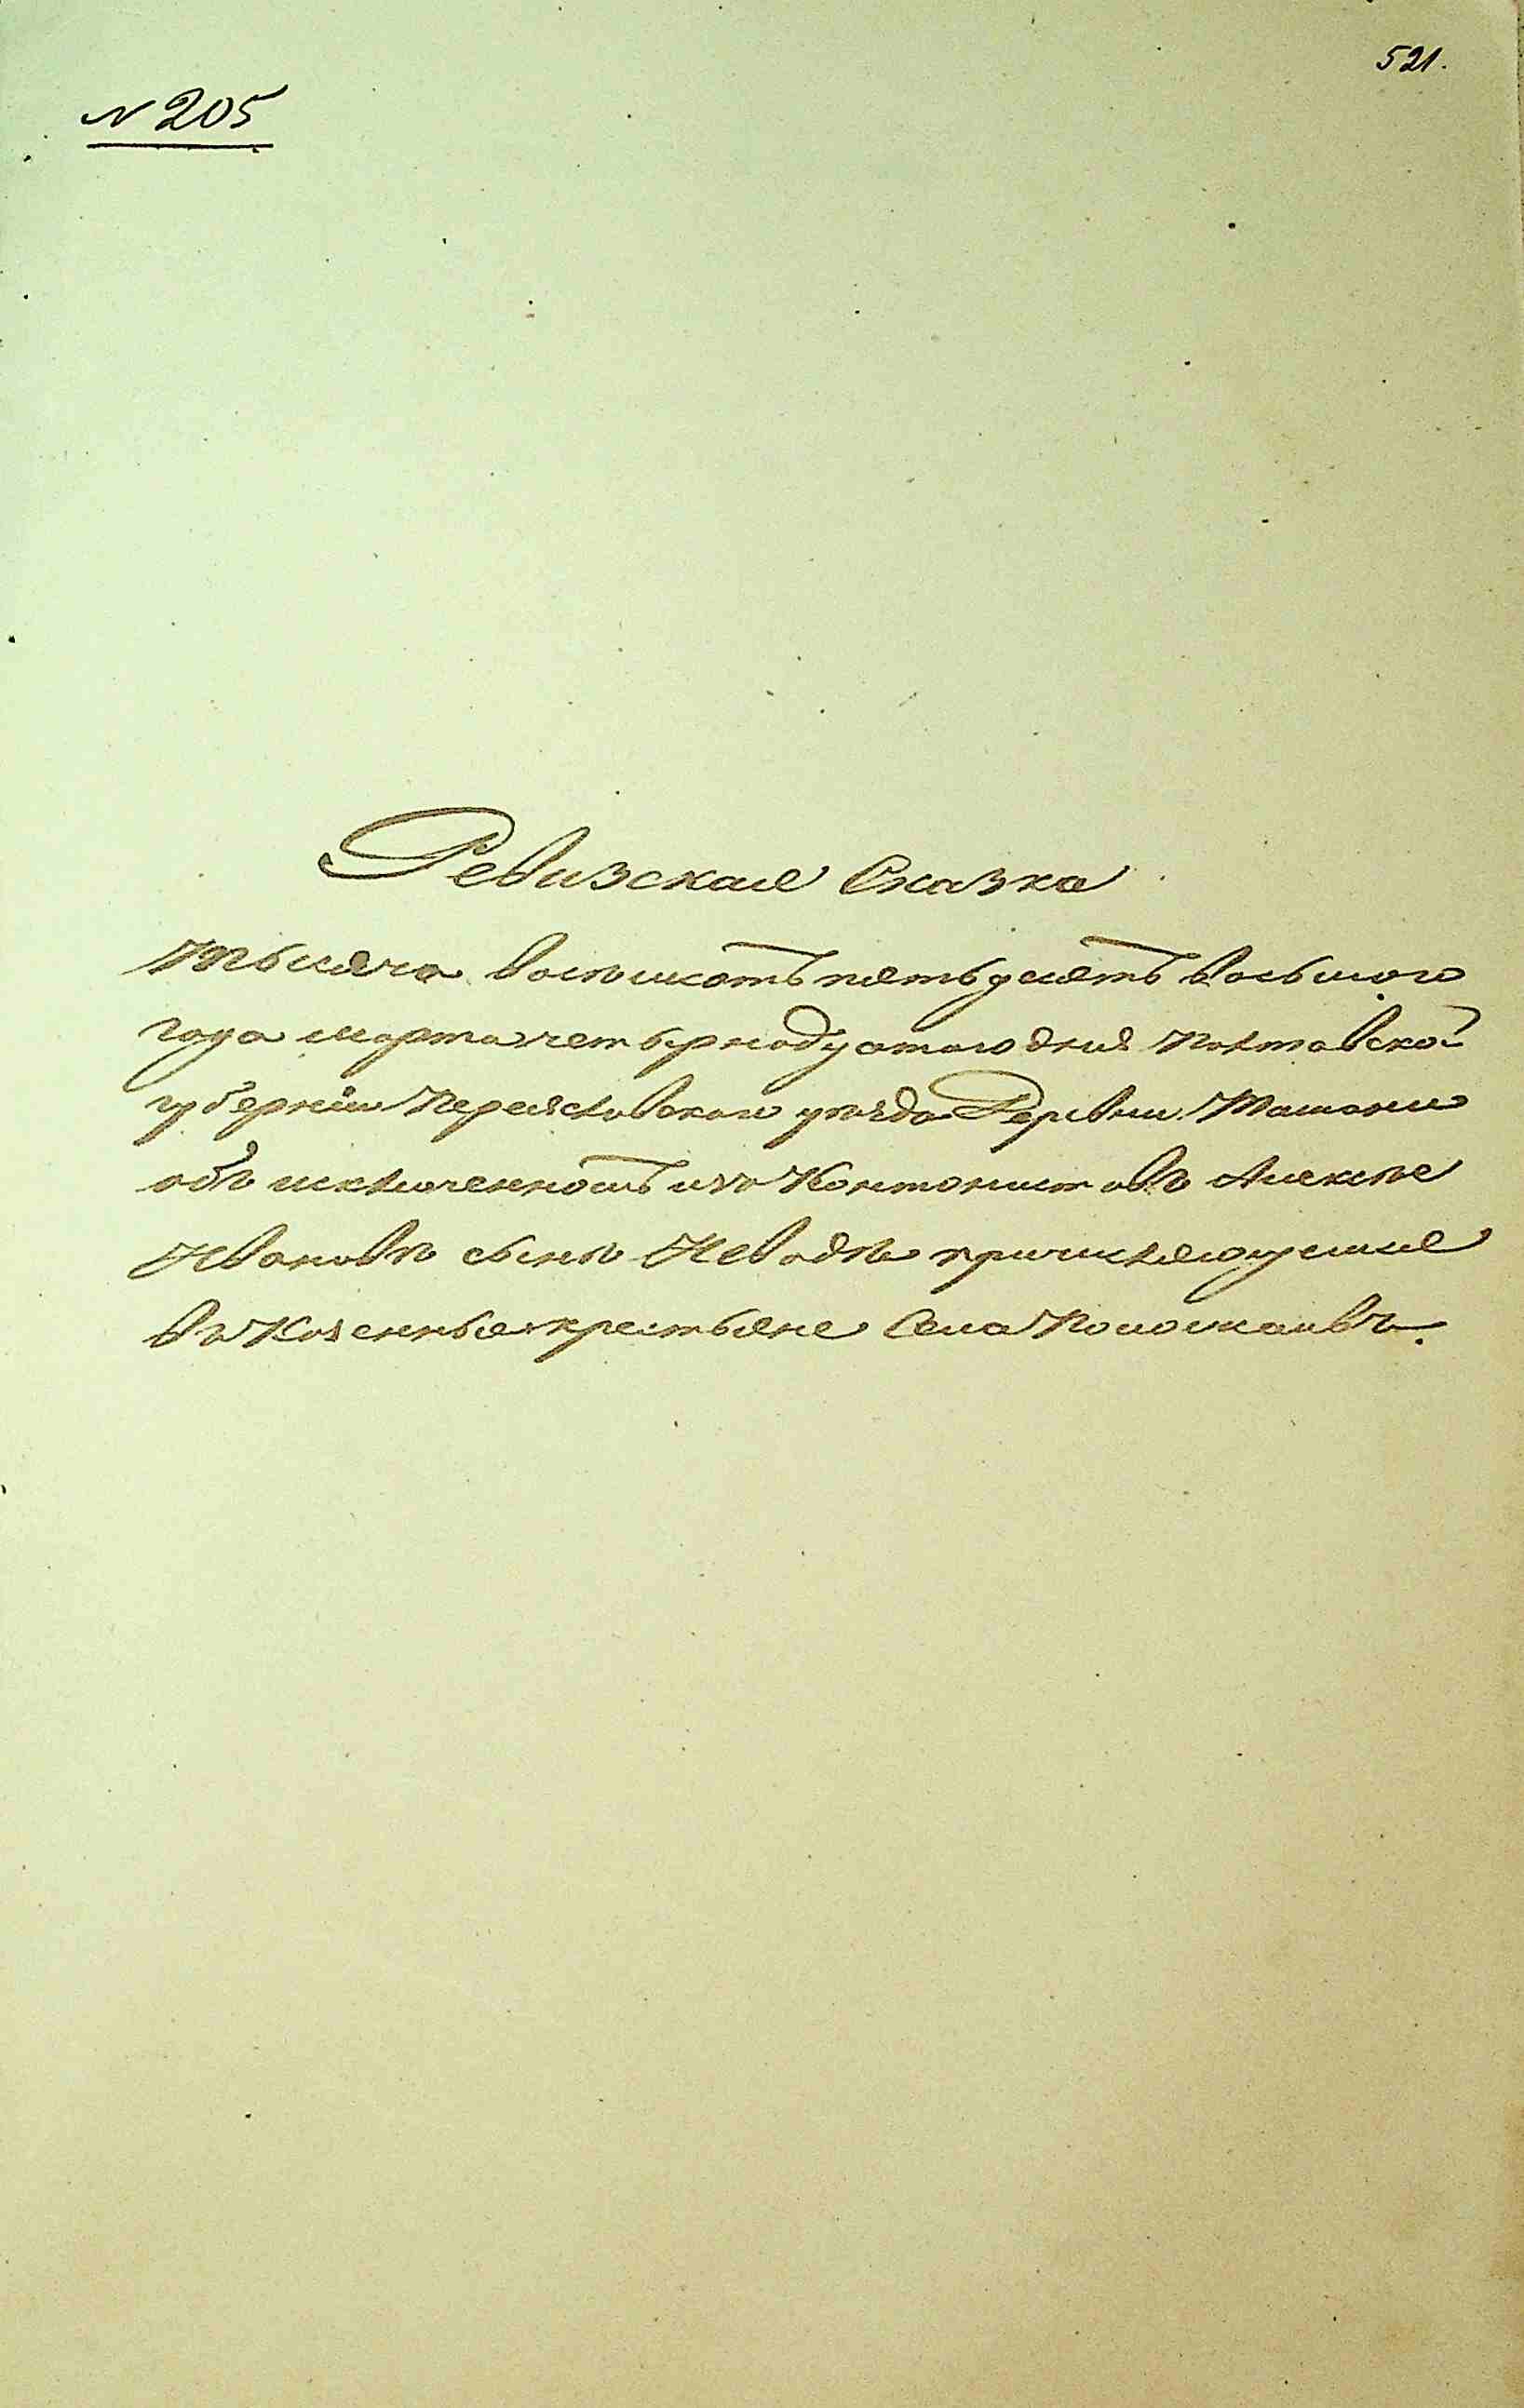 521.
№ 205
Ревизская Сказка
Тысяча восемсотъ пятьдесятъ восьмого
года марта четырнадцатого дня Полтавской
губерніи Переяславскаго уезда Деревни Ташани
объ исключенномъ изъ Контонистовъ Алексее
Ивановъ сынъ Неводъ причисляющемся
въ Казенные крестьяне Села Помокаивъ.